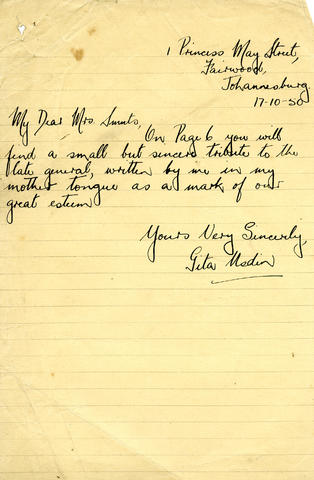 1 Princess May Street,
Fairwood,
Johannesburg.
17-10-50
My Dear Mrs. Smuts,
On Page 6 you will
find a small but sincere tribute to the
late general, written by me in my
mother tongue as a mark of our
great esteem
Yours Very Sincerely,
Gita